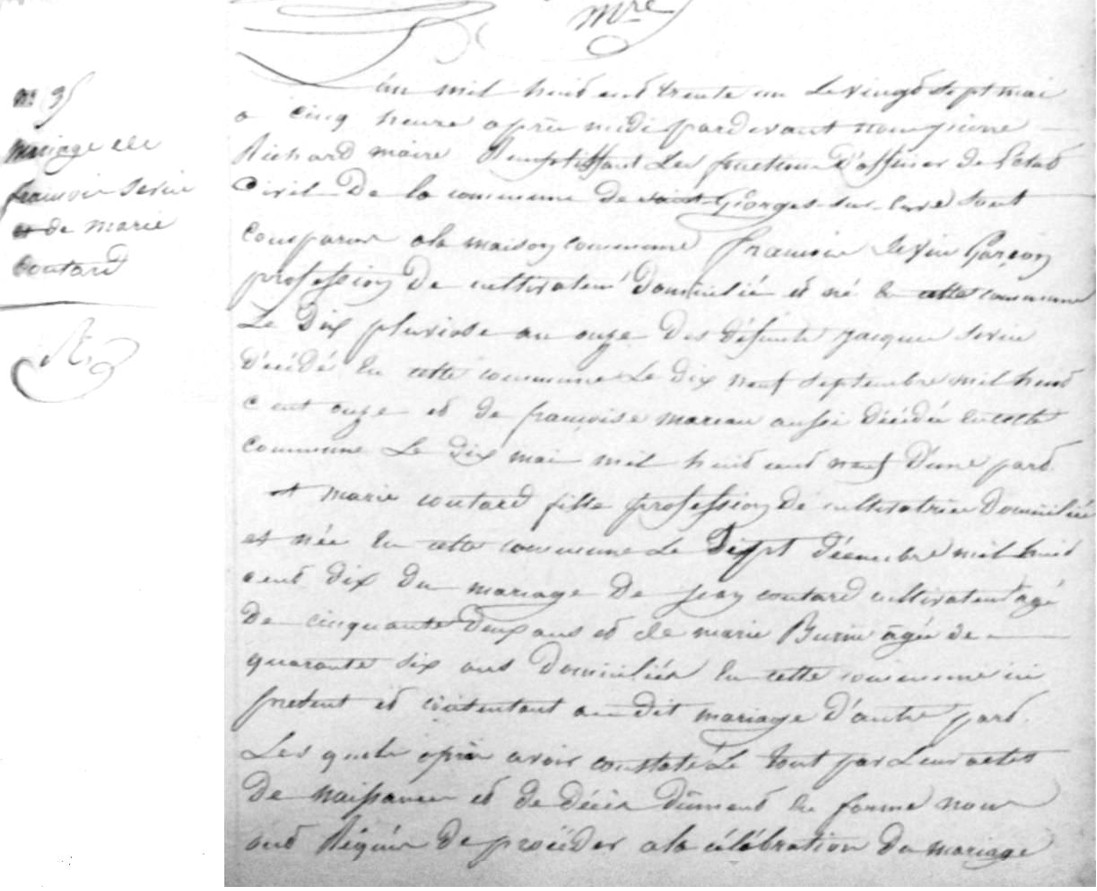 mre
nº 95
mariage de
francois sevin
et de marie
coutard
án mil huit cent trente un le vingt sept mai
a cinq heure après midi pardevant nous pierre
Richard maire Remplissant les fonctions D'officier de l'Etat
Civil De la commune de saint Georges-sur-
Comparus a la maison commune francois Sevin Garçon
profession De cultivateur Domicilié et né en cette commune
Le Dix pluviose an onze Des défunts jacques Sevin
Décédé en cette commune Le Dix neuf septembre mil huit
Cent onze et de francoise moreau aussi décédée en cette
commune Le Dix mai mil huit cent neuf D'une part
et marie coutard fille profession De cultivatrice Domiciliée
et née en cette commune Le Sept décembre mil huit
cent dix du mariage De jean coutard cultivateur agé
De cinquante deux ans et de marie Burin agée de
quarante six ans Domiciliés en cette commune ici
present et consentant au dit mariage D'autre part.
Les quels après avoir constaté Le tout par Leurs actes
De Naissance et de décès Dûment en forme nous
ont Réquis De procéder a la célébration du mariage